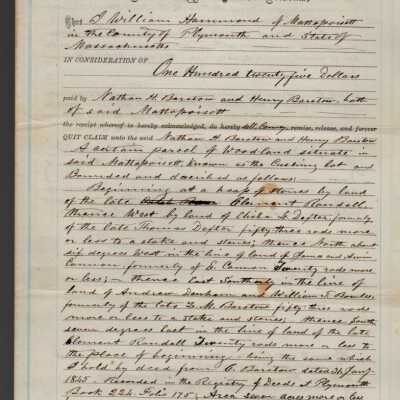 That I William Hammond of Mattapoisett
in the County of Plymouth and State of
Massachusetts
IN CONSIDERATION OF
One Hundred twenty five Dollars
paid by Nathan H. Barstow and Henry Barstow, both
of said Mattapoisett
the receipt whereof is hereby acknowledged, do hereby remise, release, and forever
QUIT CLAIM unto the said Nathan H. Barstow and Henry Barstow
A certain parcel of Woodland situate in
said Mattapoisett, known as the Cushing lot and
Bounded and discribed as follows:
Beginning at a heap of stones by land
of the late Clement Randall
thence West by land of Dexter, formerly
of the late Thomas Dexter fifty three rods more
or less to a stake and stones; thence North about
six degrees West in the line of land of and
Cannon formerly of E. Cannon Twenty rods more
or less; thence East Southerly in the line of
land of Andrew Denham and William T. Bowles,
formerly of the late Barstow fifty three rods
more or less to a stake and stones; thence South
seven degrees East in the line of land of the late
Clement Randall Twenty rods more or less to
the place of beginning - being the same which
I hold by deed from Barstow dated 31 Jany
1845 Recorded in the Registry of Deeds at Plymouth
Book 224 Folio 175, Area seven acres more or less